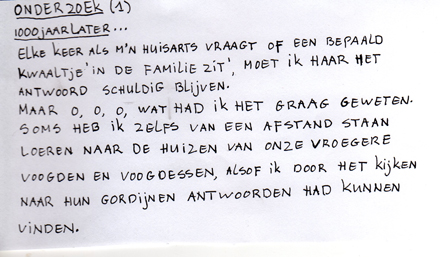 ONDERZOEK (1)
1000 JAAR LATER...
ELKE KEER ALS M'N HUISARTS VRAAGT OF EEN BEPAALD
KWAALTJE 'IN DE FAMILIE ZIT', MOET IK HAAR HET
ANTWOORD SCHULDIG BLIJVEN.
MAAR O, O, O, WAT HAD IK HET GRAAG GEWETEN.
SOMS HEB IK ZELFS VAN EEN AFSTAND STAAN
LOEREN NAAR DE HUIZEN VAN ONZE VROEGERE
VOOGDEN EN VOOGDESSEN, ALSOF IK DOOR HET KIJKEN
NAAR HUN GORDIJNEN ANTWOORDEN HAD KUNNEN
VINDEN.